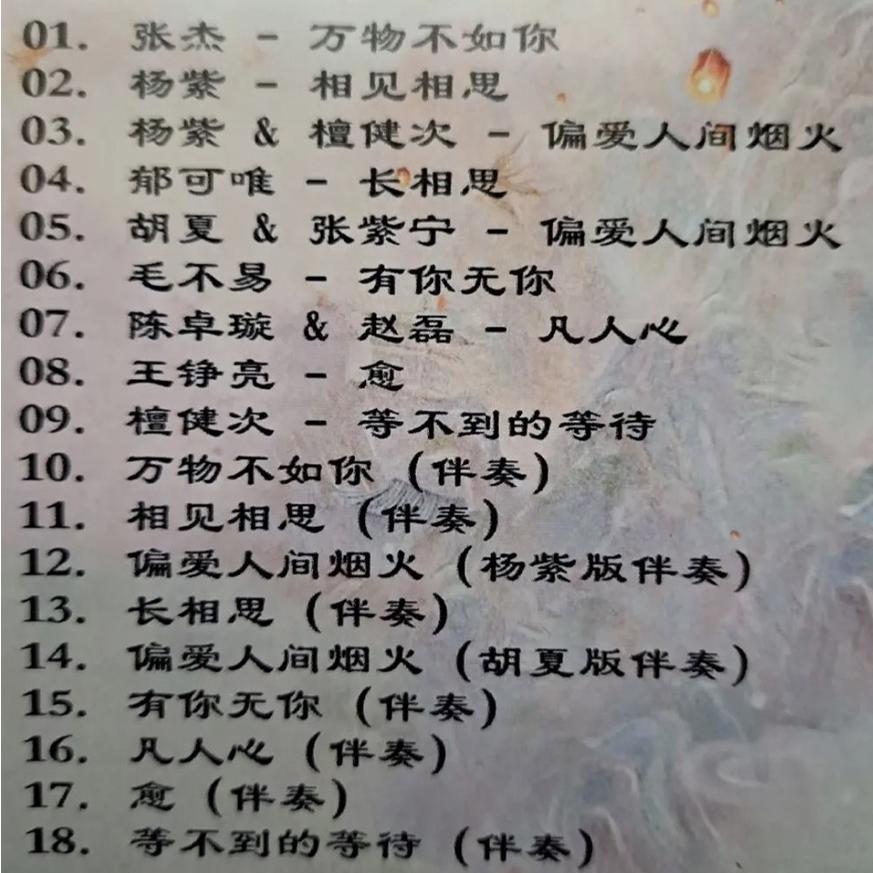 01. 张杰 - 万物不如你
02. 杨紫 - 相见相思
03. 杨紫 & 檀健次 - 偏爱人间烟火
04. 郁可唯 - 长相思
05. 胡夏 & 张紫宁 - 偏爱人间烟火
06. 毛不易 - 有你无你
07. 陈卓璇 & 赵磊 - 凡人心
08. 王铮亮 - 愈
09. 檀健次 - 等不到的等待
10. 万物不如你 (伴奏)
11. 相见相思 (伴奏)
12. 偏爱人间烟火 (杨紫版伴奏)
13. 长相思 (伴奏)
14. 偏爱人间烟火 (胡夏版伴奏)
15. 有你无你 (伴奏)
16. 凡人心 (伴奏)
17. 愈 (伴奏)
18. 等不到的等待 (伴奏)